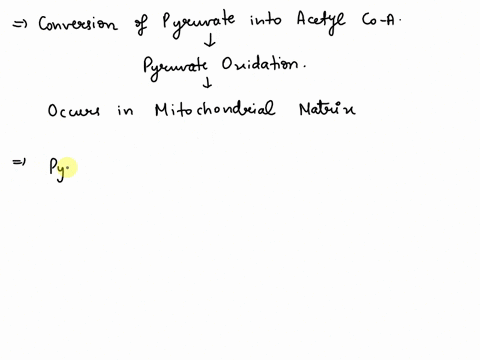 ⇒ Conversion of Pyruvate into Acetyl Co-A.
↓
Pyruvate Oxidation.
↓
Occurs in Mitochondrial Matrix
⇒ Py